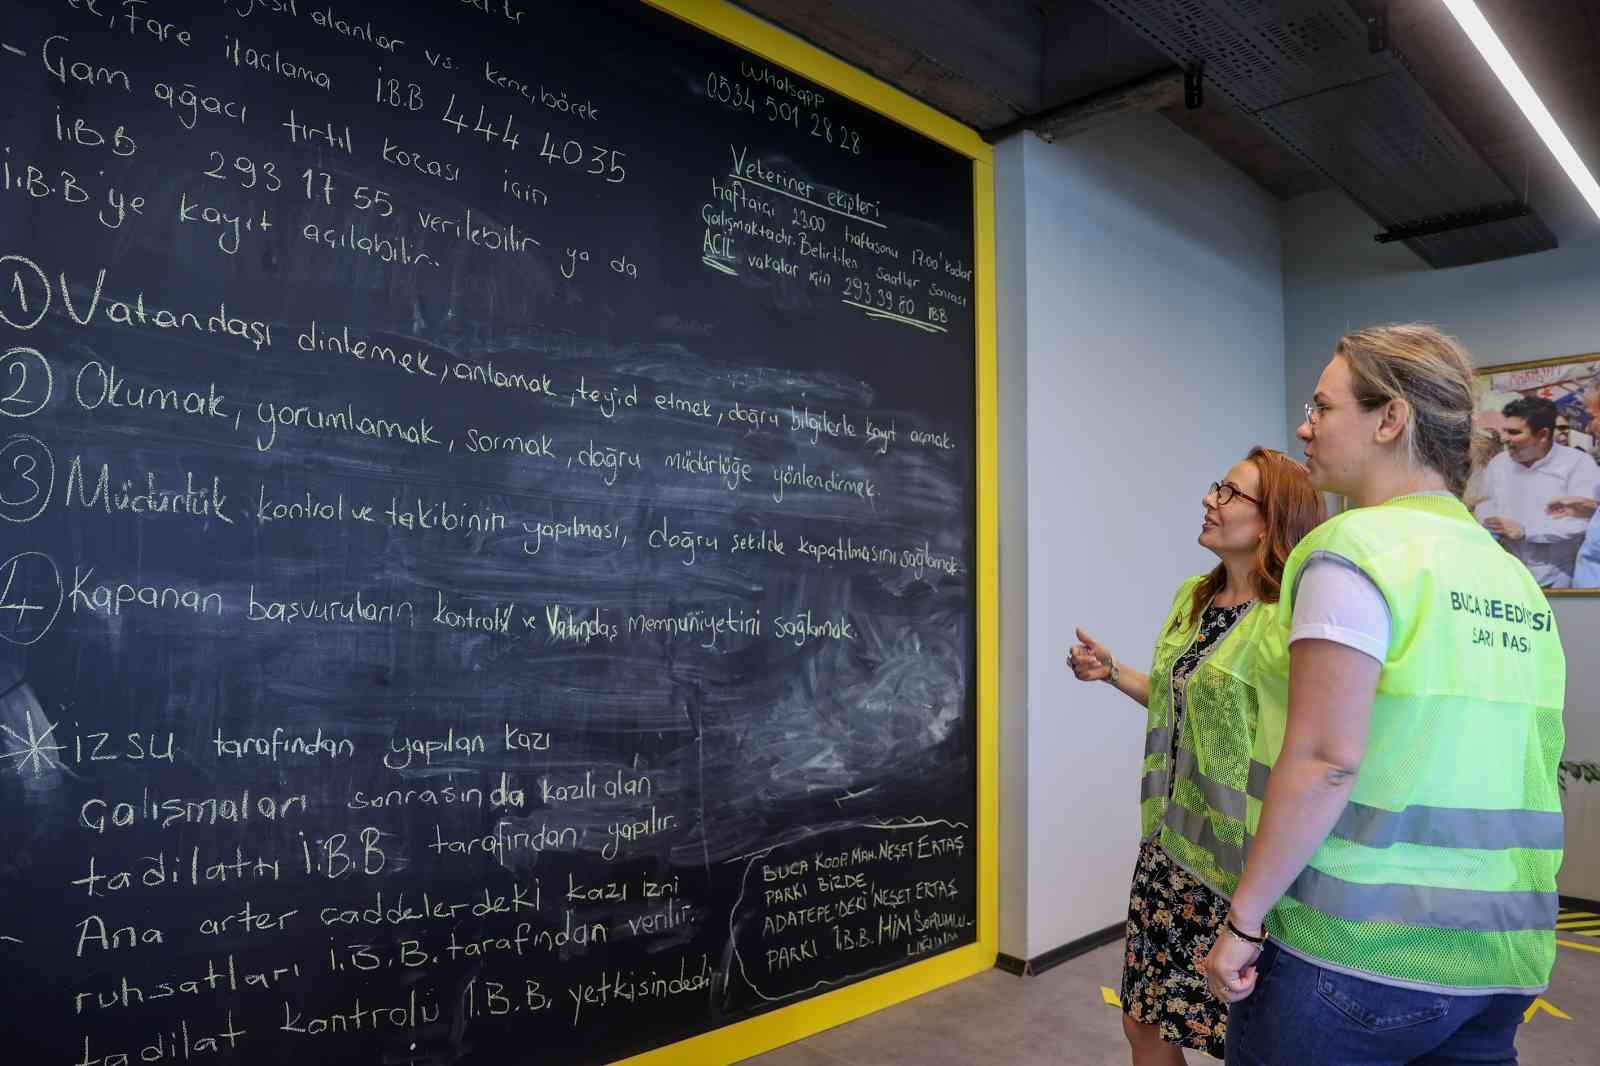 yeşil alanlar vs. kene, böcek
Fare ilaçlama İ.B.B 444 4035
- Çam ağacı tırtıl kozası için
İ.B.B 293 17 55 verilebilir ya da
İ.B.B'ye kayıt açılabilir..
Whatsapp
0534 501 28 28
Veteriner ekipleri
haftaiçi 23.00 haftasonu 17.00'kadar
Çalışmaktadır. Belirtilen saatler sonrası
ACİL vakalar için 293 39 80 İBB
① Vatandaşı dinlemek, anlamak, teyid etmek, doğru bilgilerle kayıt açmak.
② Okumak, yorumlamak, sormak, doğru müdürlüğe yönlendirmek.
③ Müdürlük kontrol ve takibinin yapılması, doğru şekilde kapatılmasını sağlamak
④ Kapanan başvuruların kontrolü ve Vatandaş Memnuniyetini sağlamak.
* İZSU tarafından yapılan kazı
çalışmaları sonrasında kazılı alan
tadilatı İ.B.B tarafından yapılır.
- Ana arter caddelerdeki kazı izni
ruhsatları İ.B.B. tarafından verilir.
tadilat kontrolü İ.B.B. yetkisindedir
BUCA KOOP. MAH. NEŞET ERTAŞ
PARKI BİZDE,
ADATEPE'DEKİ NEŞET ERTAŞ
PARKI İ.B.B. HİM SORUMLU-
LUĞUNDA
BUCA BELEDİYESİ
SARI MASA